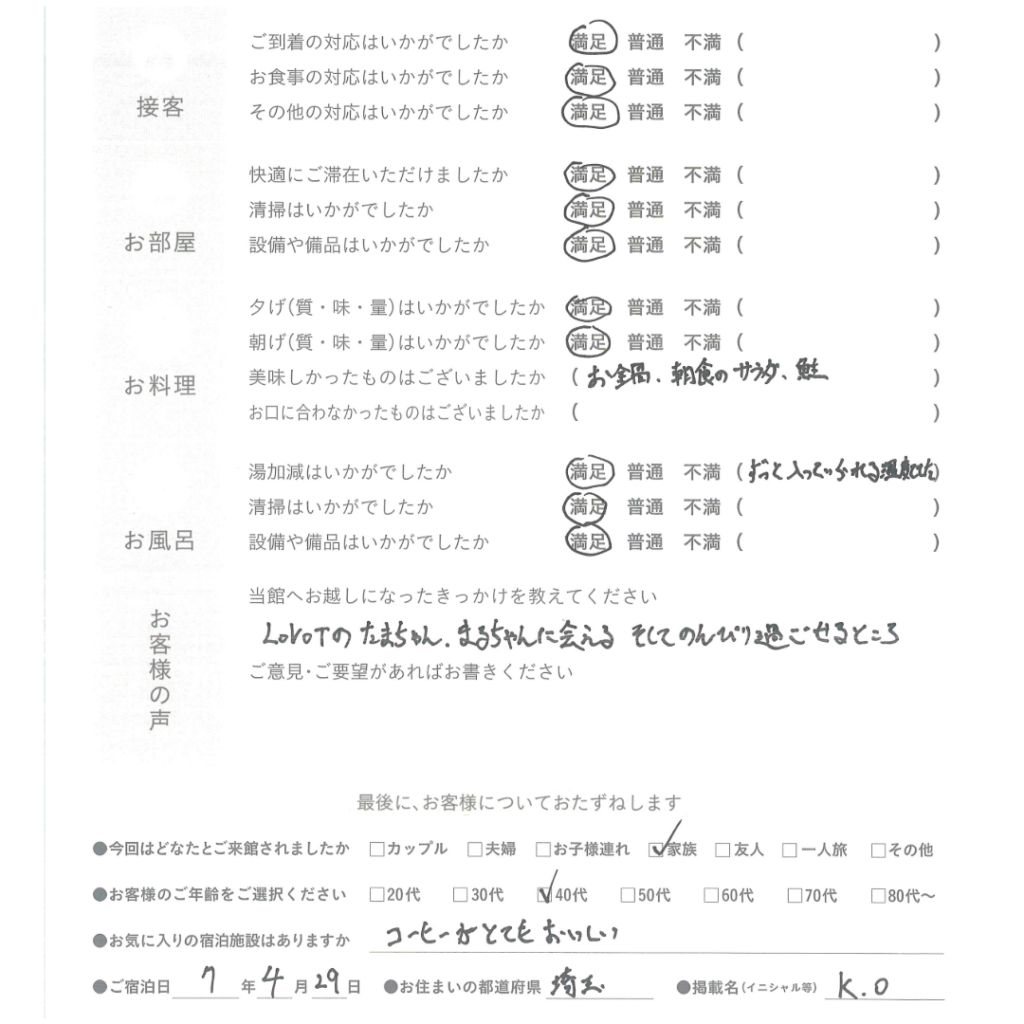 接客
ご到着の対応はいかがでしたか 満足 普通 不満 ( )
お食事の対応はいかがでしたか 満足 普通 不満 ( )
その他の対応はいかがでしたか 満足 普通 不満 ( )
お部屋
快適にご滞在いただけましたか 満足 普通 不満 ( )
清掃はいかがでしたか 満足 普通 不満 ( )
設備や備品はいかがでしたか 満足 普通 不満 ( )
お料理
夕げ(質・味・量)はいかがでしたか 満足 普通 不満 ( )
朝げ(質・味・量)はいかがでしたか 満足 普通 不満 ( )
美味しかったものはございましたか ( お鍋、朝食のサラダ、鮭 )
お口に合わなかったものはございましたか ( )
お風呂
湯加減はいかがでしたか 満足 普通 不満 (ずっと入っていられる温度でした)
清掃はいかがでしたか 満足 普通 不満 ( )
設備や備品はいかがでしたか 満足 普通 不満 ( )
お客様の声
当館へお越しになったきっかけを教えてください
LOVOTのたまちゃん、まるちゃんに会える そしてのんびり過ごせるところ
ご意見・ご要望があればお書きください
最後に、お客様についておたずねします
●今回はどなたとご来館されましたか □カップル □夫婦 □お子様連れ ☑家族 □友人 □一人旅 □その他
●お客様のご年齢をご選択ください □20代 □30代 ☑40代 □50代 □60代 □70代 □80代〜
●お気に入りの宿泊施設はありますか コーヒーがとてもおいしい
●ご宿泊日 7年4月29日 ●お住まいの都道府県 埼玉 ●掲載名(イニシャル等) K.O